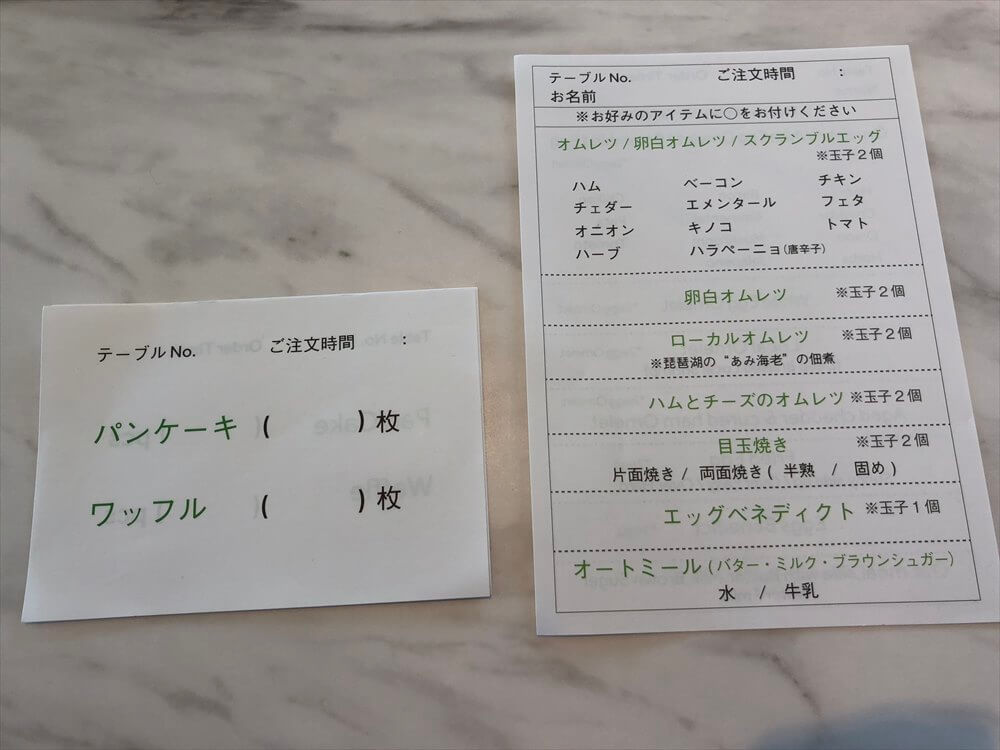 テーブル No. ご注文時間 :
パンケーキ ( ) 枚
ワッフル ( ) 枚
テーブル No. ご注文時間 :
お名前
※お好みのアイテムに○をお付けください
オムレツ / 卵白オムレツ / スクランブルエッグ
※玉子２個
ハム ベーコン チキン
チェダー エメンタール フェタ
オニオン キノコ トマト
ハーブ ハラペーニョ(唐辛子)
卵白オムレツ ※玉子２個
ローカルオムレツ ※玉子２個
※琵琶湖の“あみ海老”の佃煮
ハムとチーズのオムレツ ※玉子２個
目玉焼き ※玉子２個
片面焼き / 両面焼き( 半熟 / 固め )
エッグベネディクト ※玉子１個
オートミール (バター・ミルク・ブラウンシュガー)
水 / 牛乳